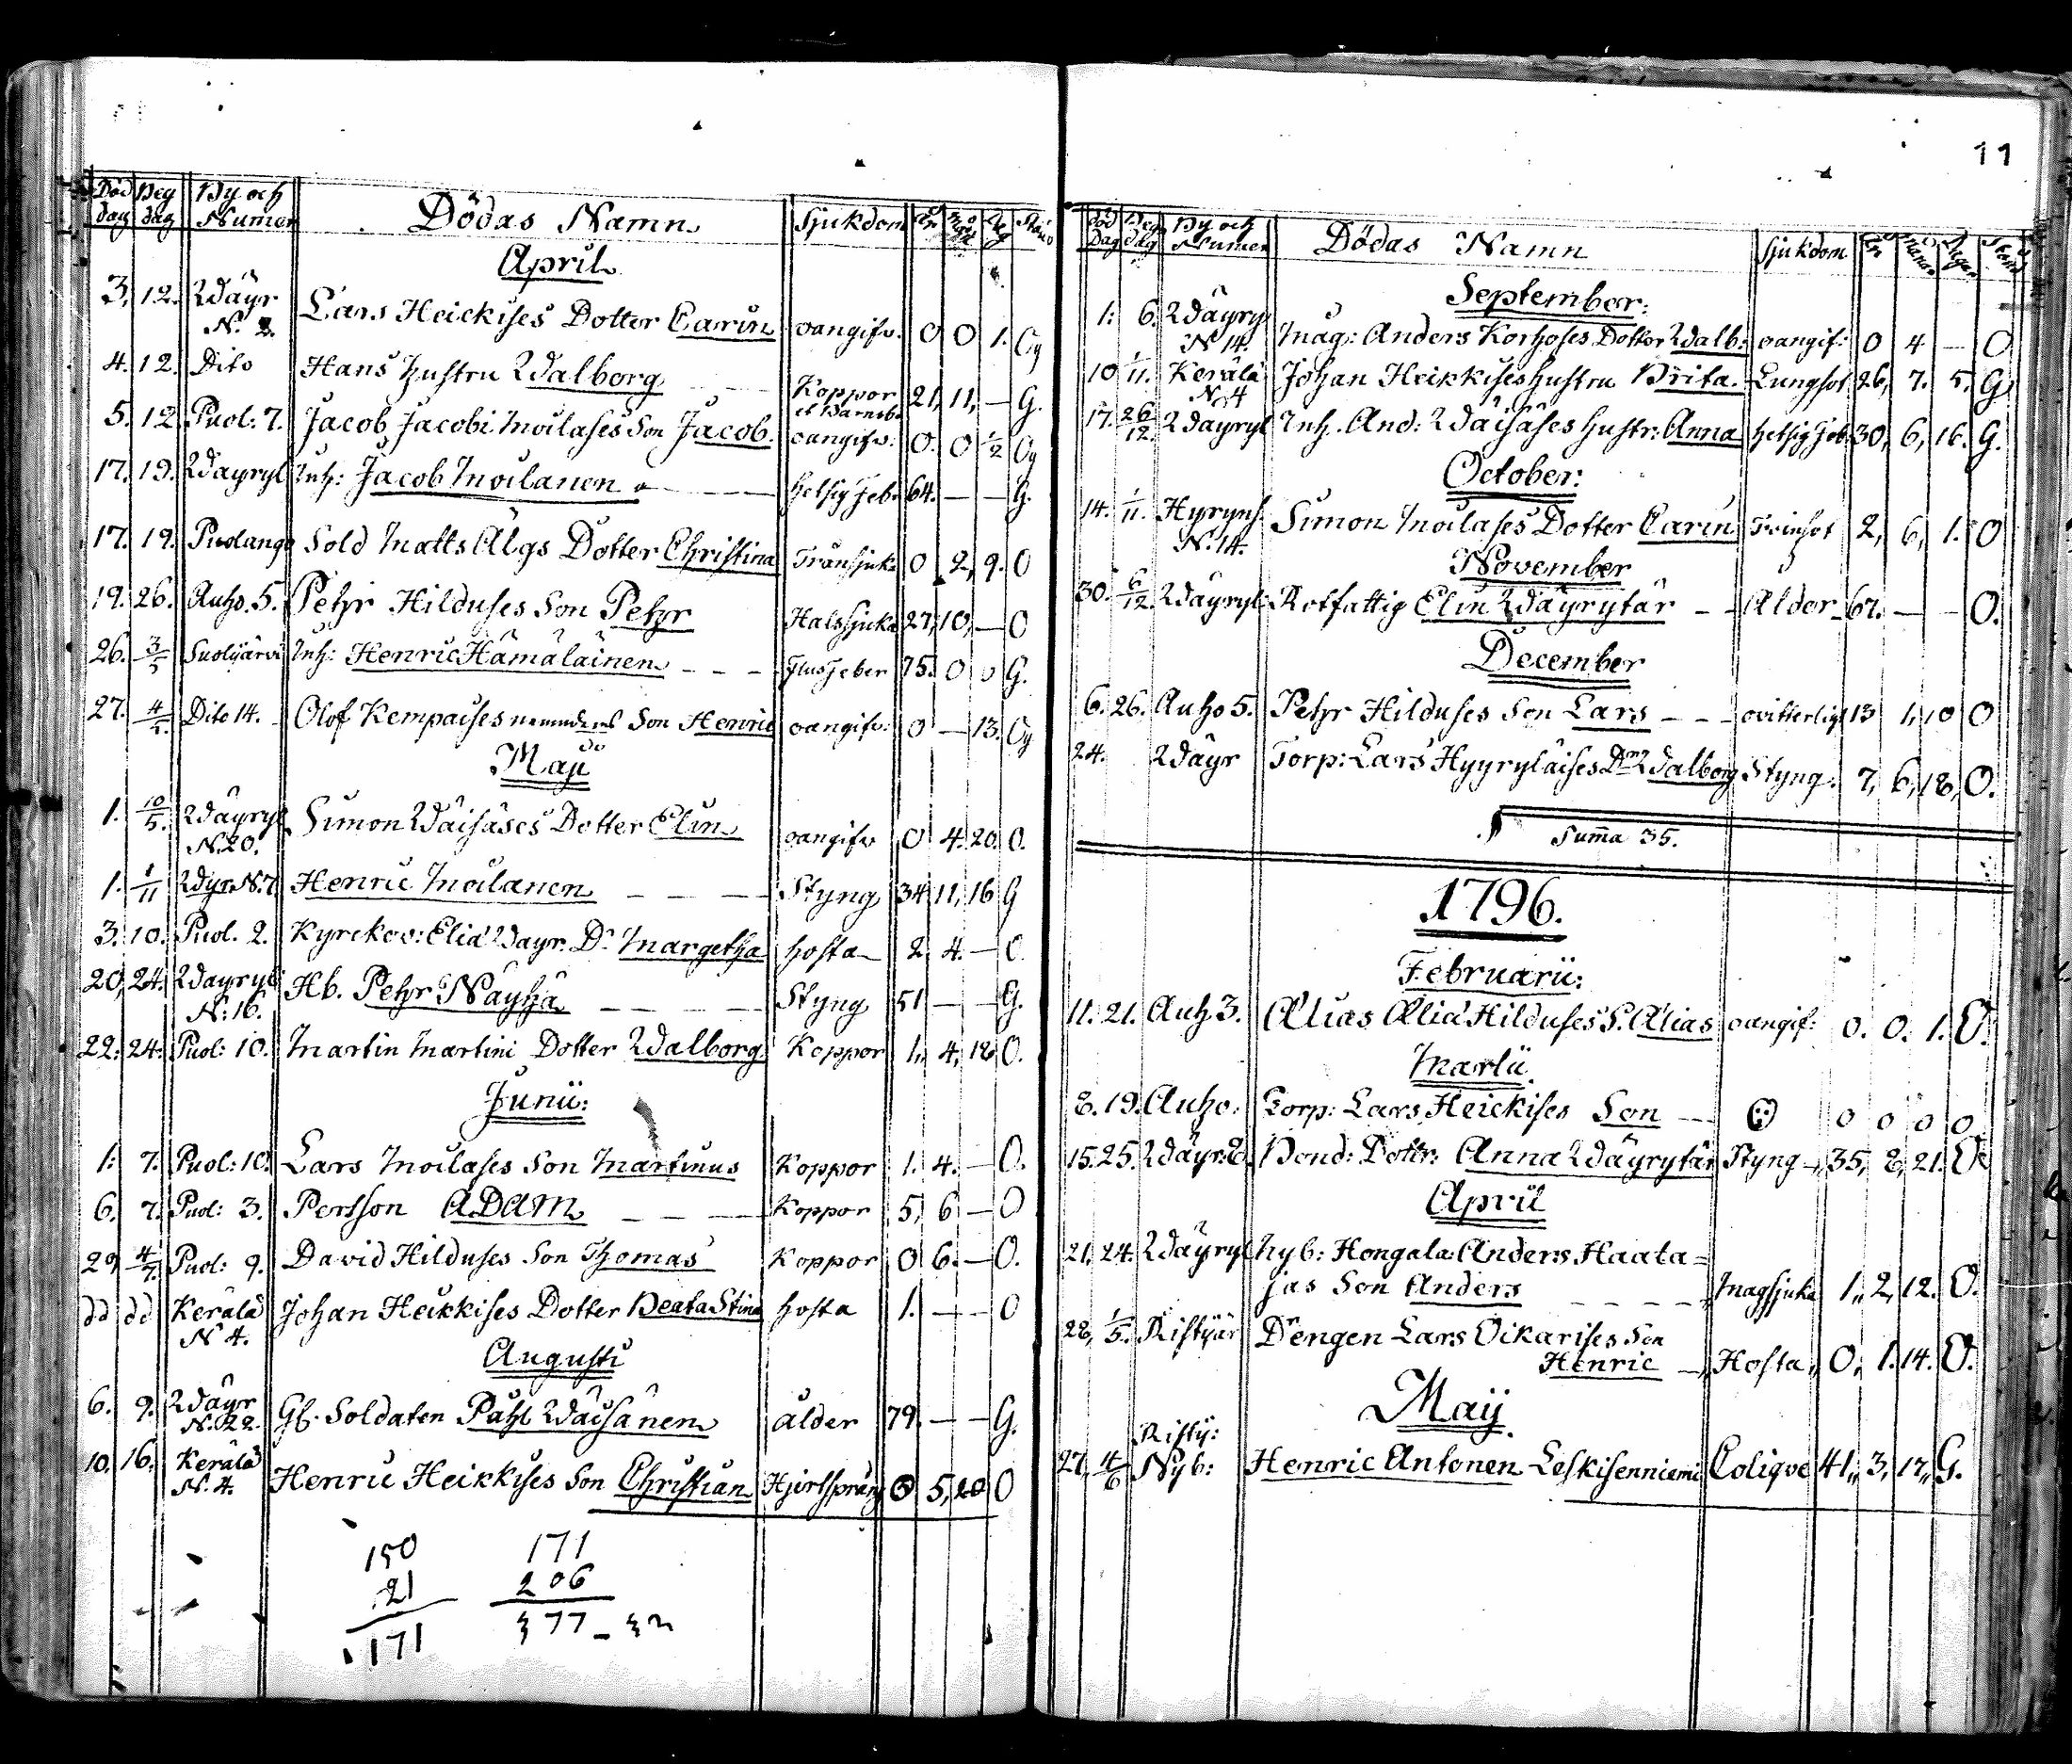 11
Död dag Beg dag By och Numer Dödas Namn Sjukdom Stånd
April
3. 12. Wäyr N. 2. Lars Heickises Dotter Carin oangifv. 0 0 1. Og
4. 12. Dito Hans hustru Walborg Koppor et Barnsb. 21, 11, — G.
5. 12 Puol: 7. Jacob Jacobi Moilases Son Jacob. oangifv: 0. 0 1/2 Og
17. 19. Wäyryl Inh: Jacob Moilanen hetsig feb. 64. — — G.
17. 19. Puolango Sold Matts Älgs Dotter Christina Trånsjuka 0 2, 9. O
19. 26. Auho. 5. Pehr Hilduses Son Pehr Halssjuka 27, 10, — O
26. 3/5 Suolijärvi Inh: Henric Hämäläinen — — — Flusfeber 75. 0 0 G.
27. 4/5. Dito 14. Olof Kempaises Son Henric oangifv: 0 — 13. Og
Maji
1. 10/5. Wäyryl N. 20. Simon Wäisäses Dotter Elin oangifv 0 4. 20. O.
1. 1/11 Wäyr. N. 7 Henric Moilanen — — — Styng 34 11, 16 G
3. 10. Puol. 2. Kyrckov: Eliæ Wäyr. Dr Margetha hosta 2, 4. — O
20, 24. Wäyryl N: 16. Hb. Pehr Näyhä — — — Styng 51 — — G.
22. 24. Puol: 10. Martin Martini Dotter Walborg Koppor 1, 4, 18 O.
Junii:
1: 7. Puol: 10. Lars Moilases Son Martinus Koppor 1. 4. — O.
6. 7. Puol: 3. Persson ADAM — — — Koppor 5, 6 — O
29, 4/7. Puol: 9. David Hilduses Son Thomas Koppor 0 6. — O.
dd dd Kerälä N 4. Johan Heikkises Dotter Beata Stina hosta 1. — — O
Augusti
6. 9. Wäyr N. 22. Gl. Soldaten Påhl Wäisänen ålder 79. — — G.
10. 16, Kerälä N. 4. Henric Heikkises Son Christian Hjertsprång 0 5, 20 O
150 171
21 206
171 377
Död Dag Beg dag By och Numer Dödas Namn Sjukdom
September:
1: 6. Wäyryl N 14. Mag: Anders Korhoses Dotter Walb: oangif: 0 4 — O
10 1/11. Kerälä N. 4 Johan Heikkises hustru Brita. Lungsot 26, 7. 5. G
17. 26/12. Wäyryl Inh. And: Wäisäses hustr: Anna hetsig feb. 30, 6, 16. G.
October:
14. 1/11. Hyryns. N. 14. Simon Moilases Dotter Carin Tvinsot 2, 6, 1. O
November
30. 6/12. Wäyryl: Rotfattig Elin Wäyrytär — — Ålder 67. — — O.
December
6. 26. Auho 5. Pehr Hilduses Son Lars — — — ovitterligt 13 1, 10 O
24. Wäyr Torp: Lars Hyyryläises Dr Walborg Styng: 7, 6, 18, O.
Suma 35.
1796.
Februarii:
11. 21. Auh 3. Ælias Æliæ Hilduses S. Ælias oangif: 0. 0. 1. O.
Martii
8. 19. Auho. Torp: Lars Heickises Son — 0 0 0 0
15. 25. Wäyr: 2. Bond: Dottr: Anna Wäyrytär Styng — 35, 8, 21. O
April
21. 24. Wäyryl Nyb: Hongala: Anders Haata=
jas Son Anders — — — Magsjuka 1, 2, 12. O.
28, 1/5. Ristijär Drengen Lars Oikarises Son
Henric — Hosta, 0, 1. 14. O.
Maij
27. 4/6 Ristij: Nyb: Henric Antonen Leskisenniemi Colique 41, 3, 17, G.